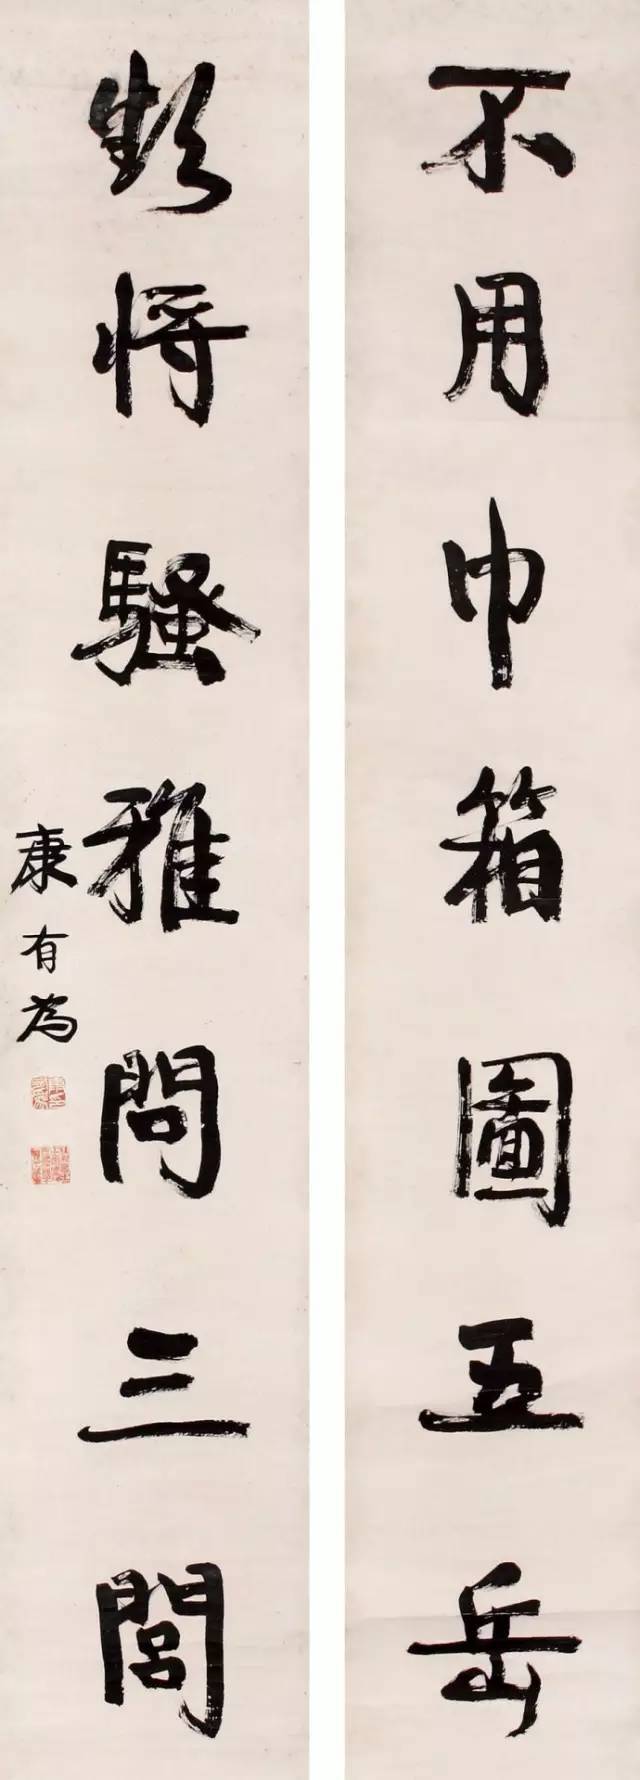 不用巾箱圖五岳
欵將騷雅問三閭
康有為